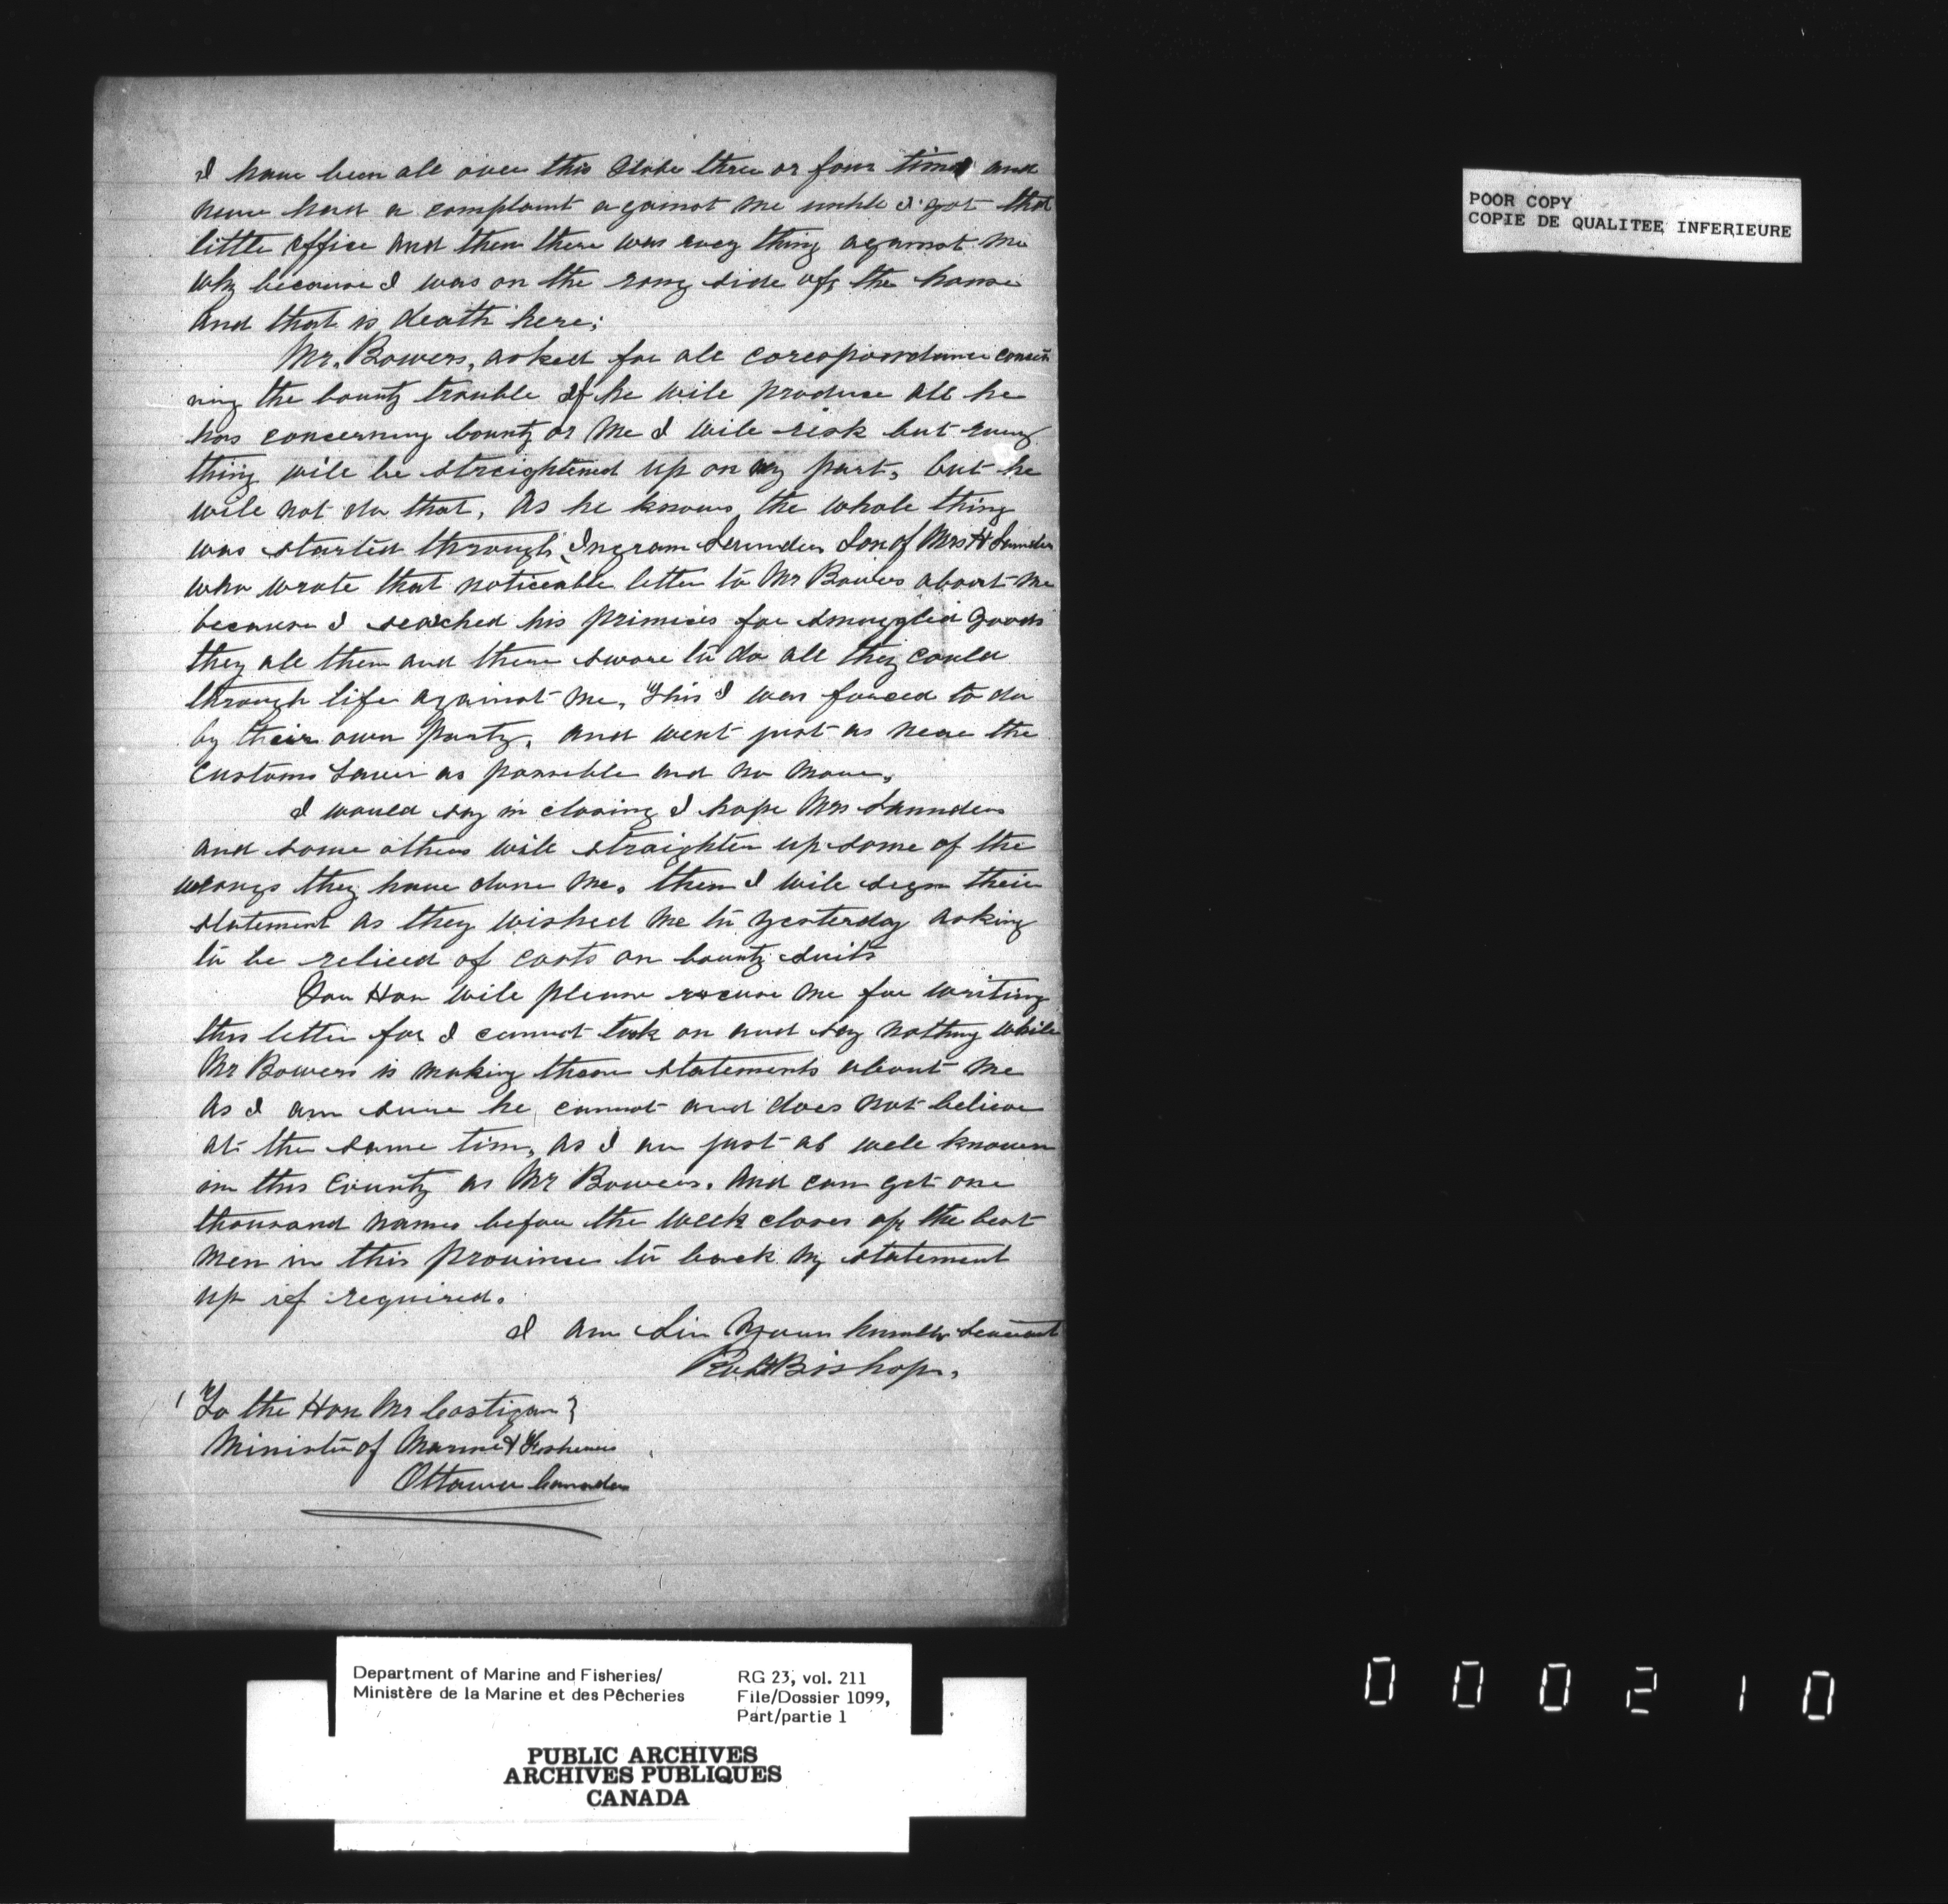 I have been all over this Globe three or four times and
never had a complaint against me untill I got that
little office and then there was evey thing against me
why because I was on the rong side off the house
and that is death here;
Mr. Bowers, asked for all corespoondance concer
ning the bounty trouble If he will produce all he
has concerning bounty or me I will risk but every
thing will be streightened up on my part, but he
will not do that, as he knows the whole thing
was started through Ingram Saunders Son of Mrs H Saunders
who wrote that noticeable letter to Mr Bowers about me
because I searched his primices for smugglid goods
they all then and there swore to do all they could
through life against me, This I was forced to do
by their own party, and went just as near the
Customs Laws as possible and no more,
I would say in closing I hope Mrs Saunders
and some others will straighten up some of the
wrongs they have done me, then I will sign their
statement as they wished me to yesterday asking
to be relieed of costs on bounty suits
You Hon will please excuse me for writing
this letter for I cannot look on and say nothing while
Mr Bowers is making these statements about me
as I am sure he cannot and does not believe
at the same time, as I am just as well known
in this County as Mr Bowers. and can get one
thousand names before the week closes off the best
men in this province to back my statement
up if required.
I am Sir Your humble Servant
Robt Bishop,
To the Hon Mr Costigan }
Minister of Marine & Fisheries
Ottawa Canada
POOR COPY
COPIE DE QUALITEE INFERIEURE
Department of Marine and Fisheries/
Ministère de la Marine et des Pêcheries
RG 23, vol. 211
File/Dossier 1099,
Part/partie 1
PUBLIC ARCHIVES
ARCHIVES PUBLIQUES
CANADA
0 0 0 2 1 0